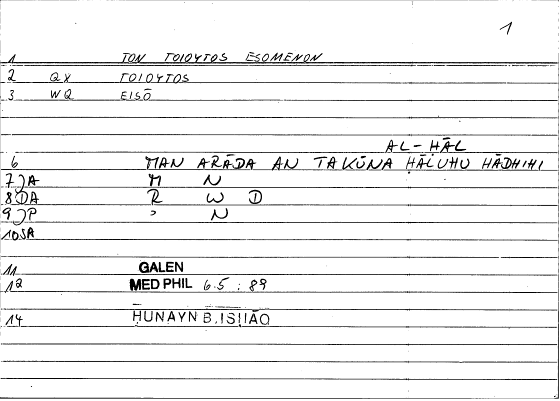 1
1 TON TOIOYTOS ESOMENON
2 QX TOIOYTOS
3 WQ EISŌ
AL-HĀL
6 MAN ARĀDA AN TAKŪNA ḤĀLUHU HĀDHIHI
7)A M N
8)DA R W D
9)P ʾ N
10SA
11 GALEN
12 MED PHIL 6.5 : 89
14 ḤUNAYN B. ISḤĀQ